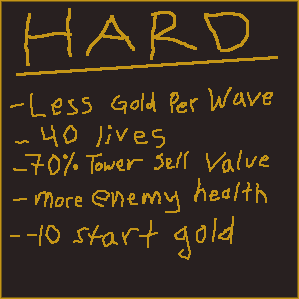 HARD
- Less Gold Per Wave
- 40 lives
- 70% Tower Sell Value
- more enemy health
- -10 start gold